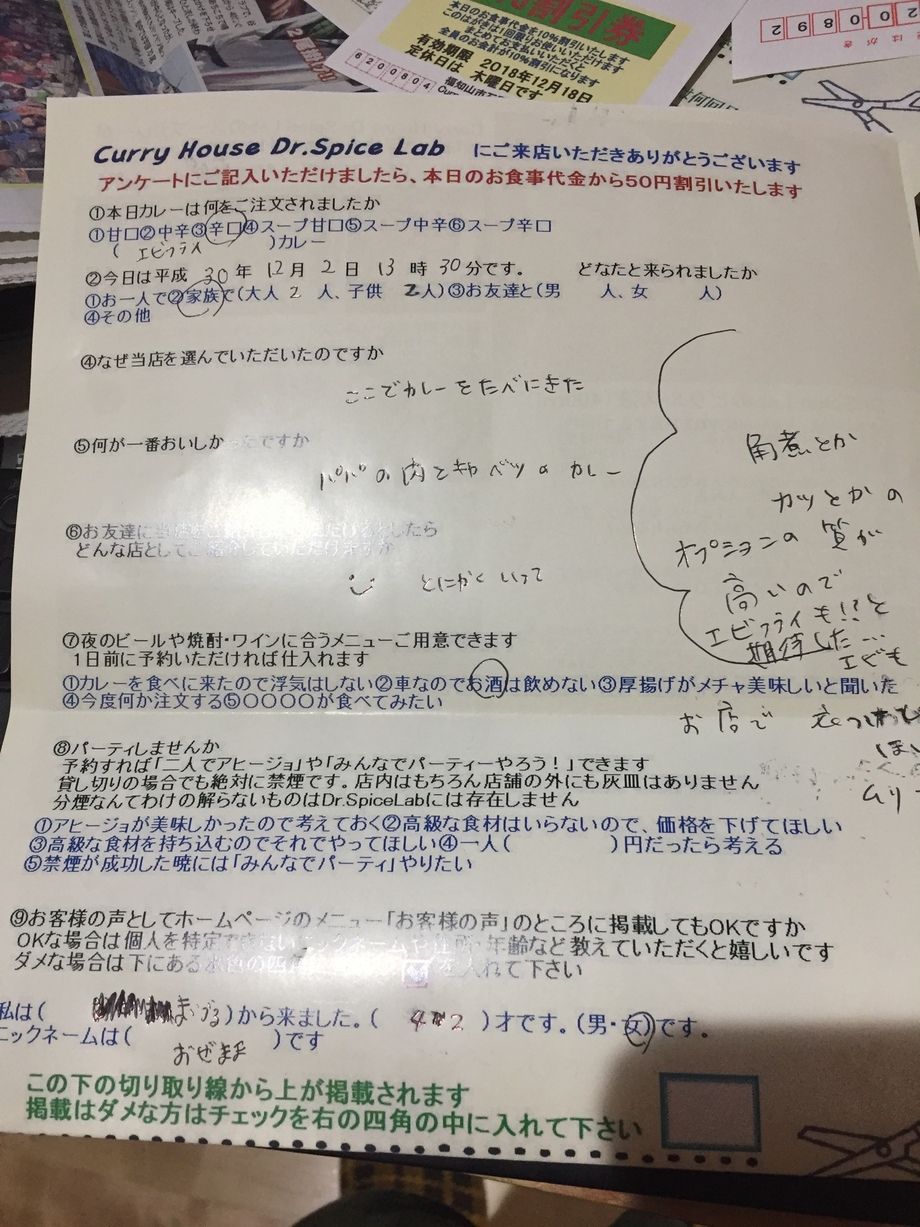 割引券
本日のお食事代金を10%割引いたします
このはがきは1回限りお使いいただけます
まとめてお支払いいただくと
全員のお会計が10%割引になります
有効期限 2018年12月18日
定休日は 木曜日です
6200804
福知山市
はがき
Curry House Dr.Spice Lab にご来店いただきありがとうございます
アンケートにご記入いただけましたら、本日のお食事代金から50円割引いたします
①本日カレーは何をご注文されましたか
①甘口②中辛③辛口④スープ甘口⑤スープ中辛⑥スープ辛口
( エビフライ )カレー
②今日は平成 30年 12月 2日 13時 30分です。 どなたと来られましたか
①お一人で②家族で(大人 2 人、子供 2人)③お友達と(男 人、女 人)
④その他
④なぜ当店を選んでいただいたのですか
ここでカレーをたべにきた
⑤何が一番おいしかったですか
パパの肉とキャベツのカレー
⑥お友達に当店を
どんな店として
とにかく いって
角煮とか
カツとかの
オプションの質が
高いので
エビフライも!?と
期待した…
エビも
お店で 衣つけて
ほし
ムリー
⑦夜のビールや焼酎・ワインに合うメニューご用意できます
1日前に予約いただければ仕入れます
①カレーを食べに来たので浮気はしない②車なのでお酒は飲めない③厚揚げがメチャ美味しいと聞いた
④今度何か注文する⑤〇〇〇〇が食べてみたい
⑧パーティしませんか
予約すれば「二人でアヒージョ」や「みんなでパーティーやろう!」できます
貸し切りの場合でも絶対に禁煙です。店内はもちろん店舗の外にも灰皿はありません
分煙なんてわけの解らないものはDr.SpiceLabには存在しません
①アヒージョが美味しかったので考えておく②高級な食材はいらないので、価格を下げてほしい
③高級な食材を持ち込むのでそれでやってほしい④一人( )円だったら考える
⑤禁煙が成功した暁には「みんなでパーティ」やりたい
⑨お客様の声としてホームページのメニュー「お客様の声」のところに掲載してもOKですか
OKな場合は個人を特定できないニックネームや住所・年齢など教えていただくと嬉しいです
ダメな場合は下にある水色の四角 を入れて下さい
私は( まいづる )から来ました。( 42 )才です。(男・女)です。
ニックネームは( おぜまま )です
この下の切り取り線から上が掲載されます
掲載はダメな方はチェックを右の四角の中に入れて下さい